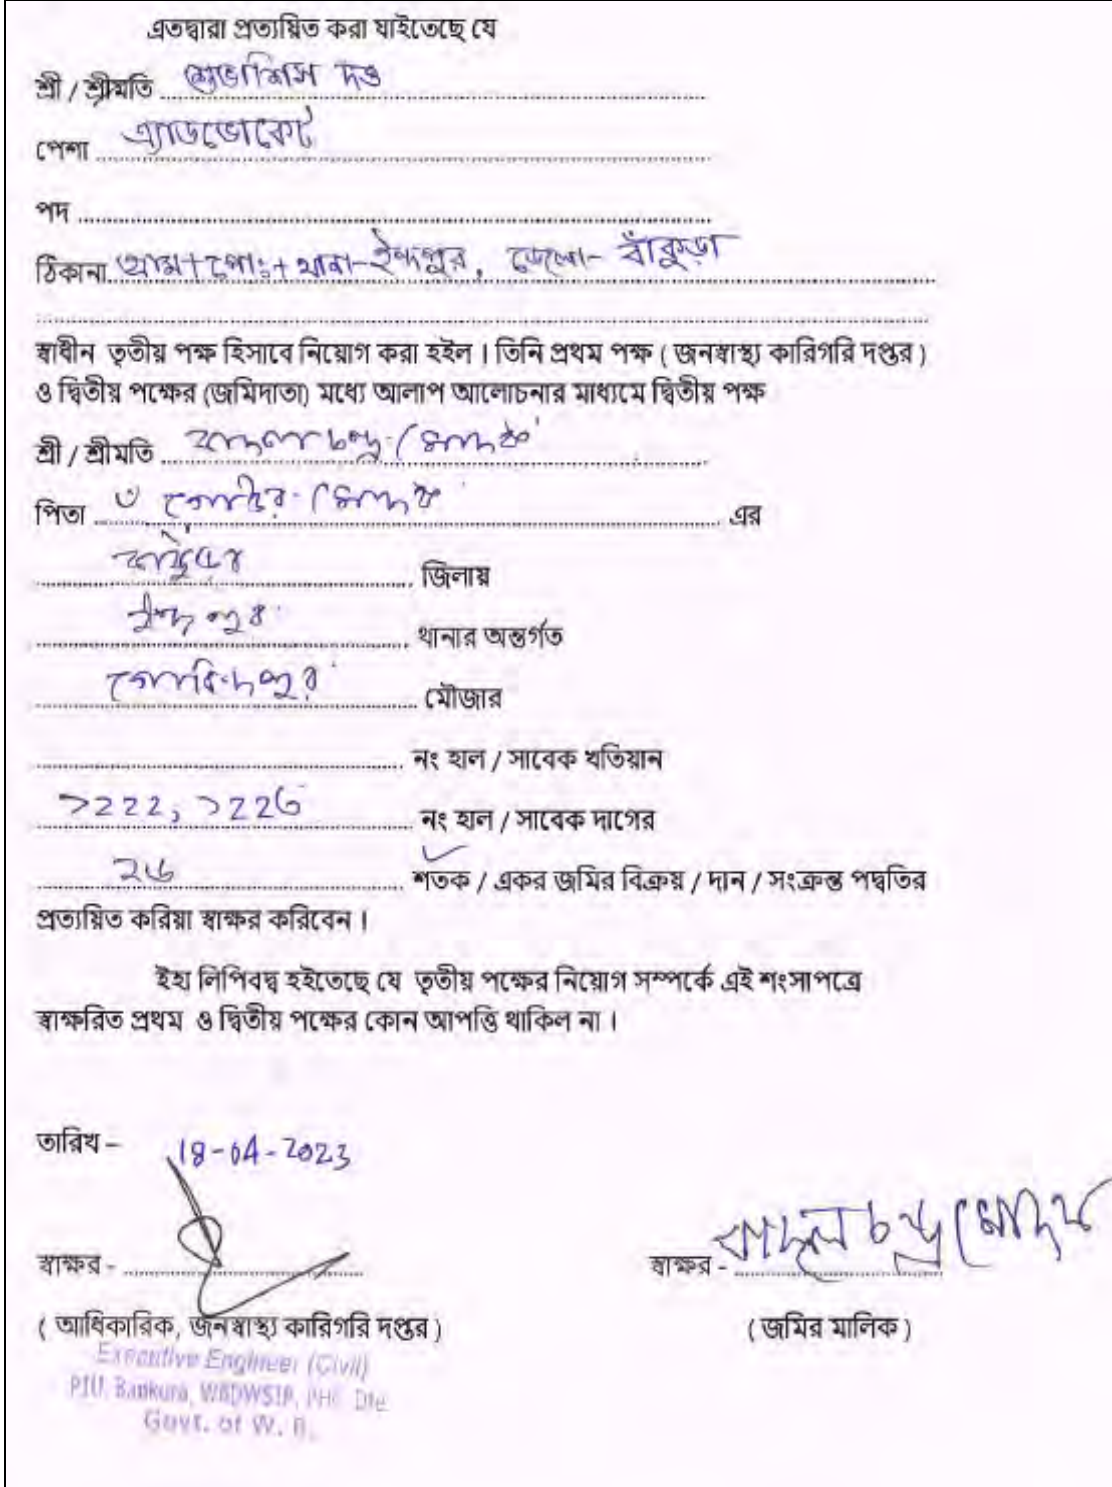 এতদ্বারা প্রত্যয়িত করা যাইতেছে যে
শ্রী / শ্রীমতি শুভাশিস দত্ত
পেশা এ্যাডভোকেট
পদ
ঠিকানা গ্রাম+পোঃ+থানা-ইন্দপুর, জেলা- বাঁকুড়া
স্বাধীন তৃতীয় পক্ষ হিসাবে নিয়োগ করা হইল । তিনি প্রথম পক্ষ ( জনস্বাস্থ্য কারিগরি দপ্তর )
ও দ্বিতীয় পক্ষের (জমিদাতা) মধ্যে আলাপ আলোচনার মাধ্যমে দ্বিতীয় পক্ষ
শ্রী / শ্রীমতি বাদল চন্দ্র মোদক
পিতা মোদক এর
বাঁকুড়া জিলায়
ইন্দপুর থানার অন্তর্গত
গোবিন্দপুর মৌজার
নং হাল / সাবেক খতিয়ান
১২২২, ১২২৬ নং হাল / সাবেক দাগের
২৬ শতক / একর জমির বিক্রয় / দান / সংক্রন্ত পদ্বতির
প্রত্যয়িত করিয়া স্বাক্ষর করিবেন ।
ইহা লিপিবদ্ব হইতেছে যে তৃতীয় পক্ষের নিয়োগ সম্পর্কে এই শংসাপত্রে
স্বাক্ষরিত প্রথম ও দ্বিতীয় পক্ষের কোন আপত্তি থাকিল না ।
তারিখ – 18-04-2023
স্বাক্ষর - স্বাক্ষর - বাদল চন্দ্র মোদক
( আধিকারিক, জনস্বাস্থ্য কারিগরি দপ্তর ) ( জমির মালিক )
Executive Engineer (Civil)
PIU, Bankura, WBDWSIP, PHE Dte
Govt. of W. B.